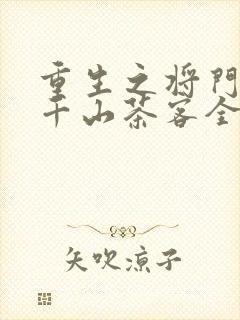 重生之将門
千山茶客全
矢吹涼子